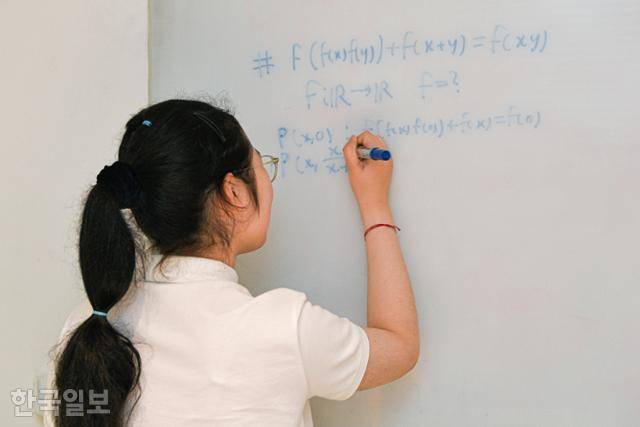 # f(f(x)f(y))+f(x+y)=f(xy)
f:ℝ→ℝ f=?
P(x,0) : f(f(x)f(0))+f(x)=f(0)
P(x,
한국일보